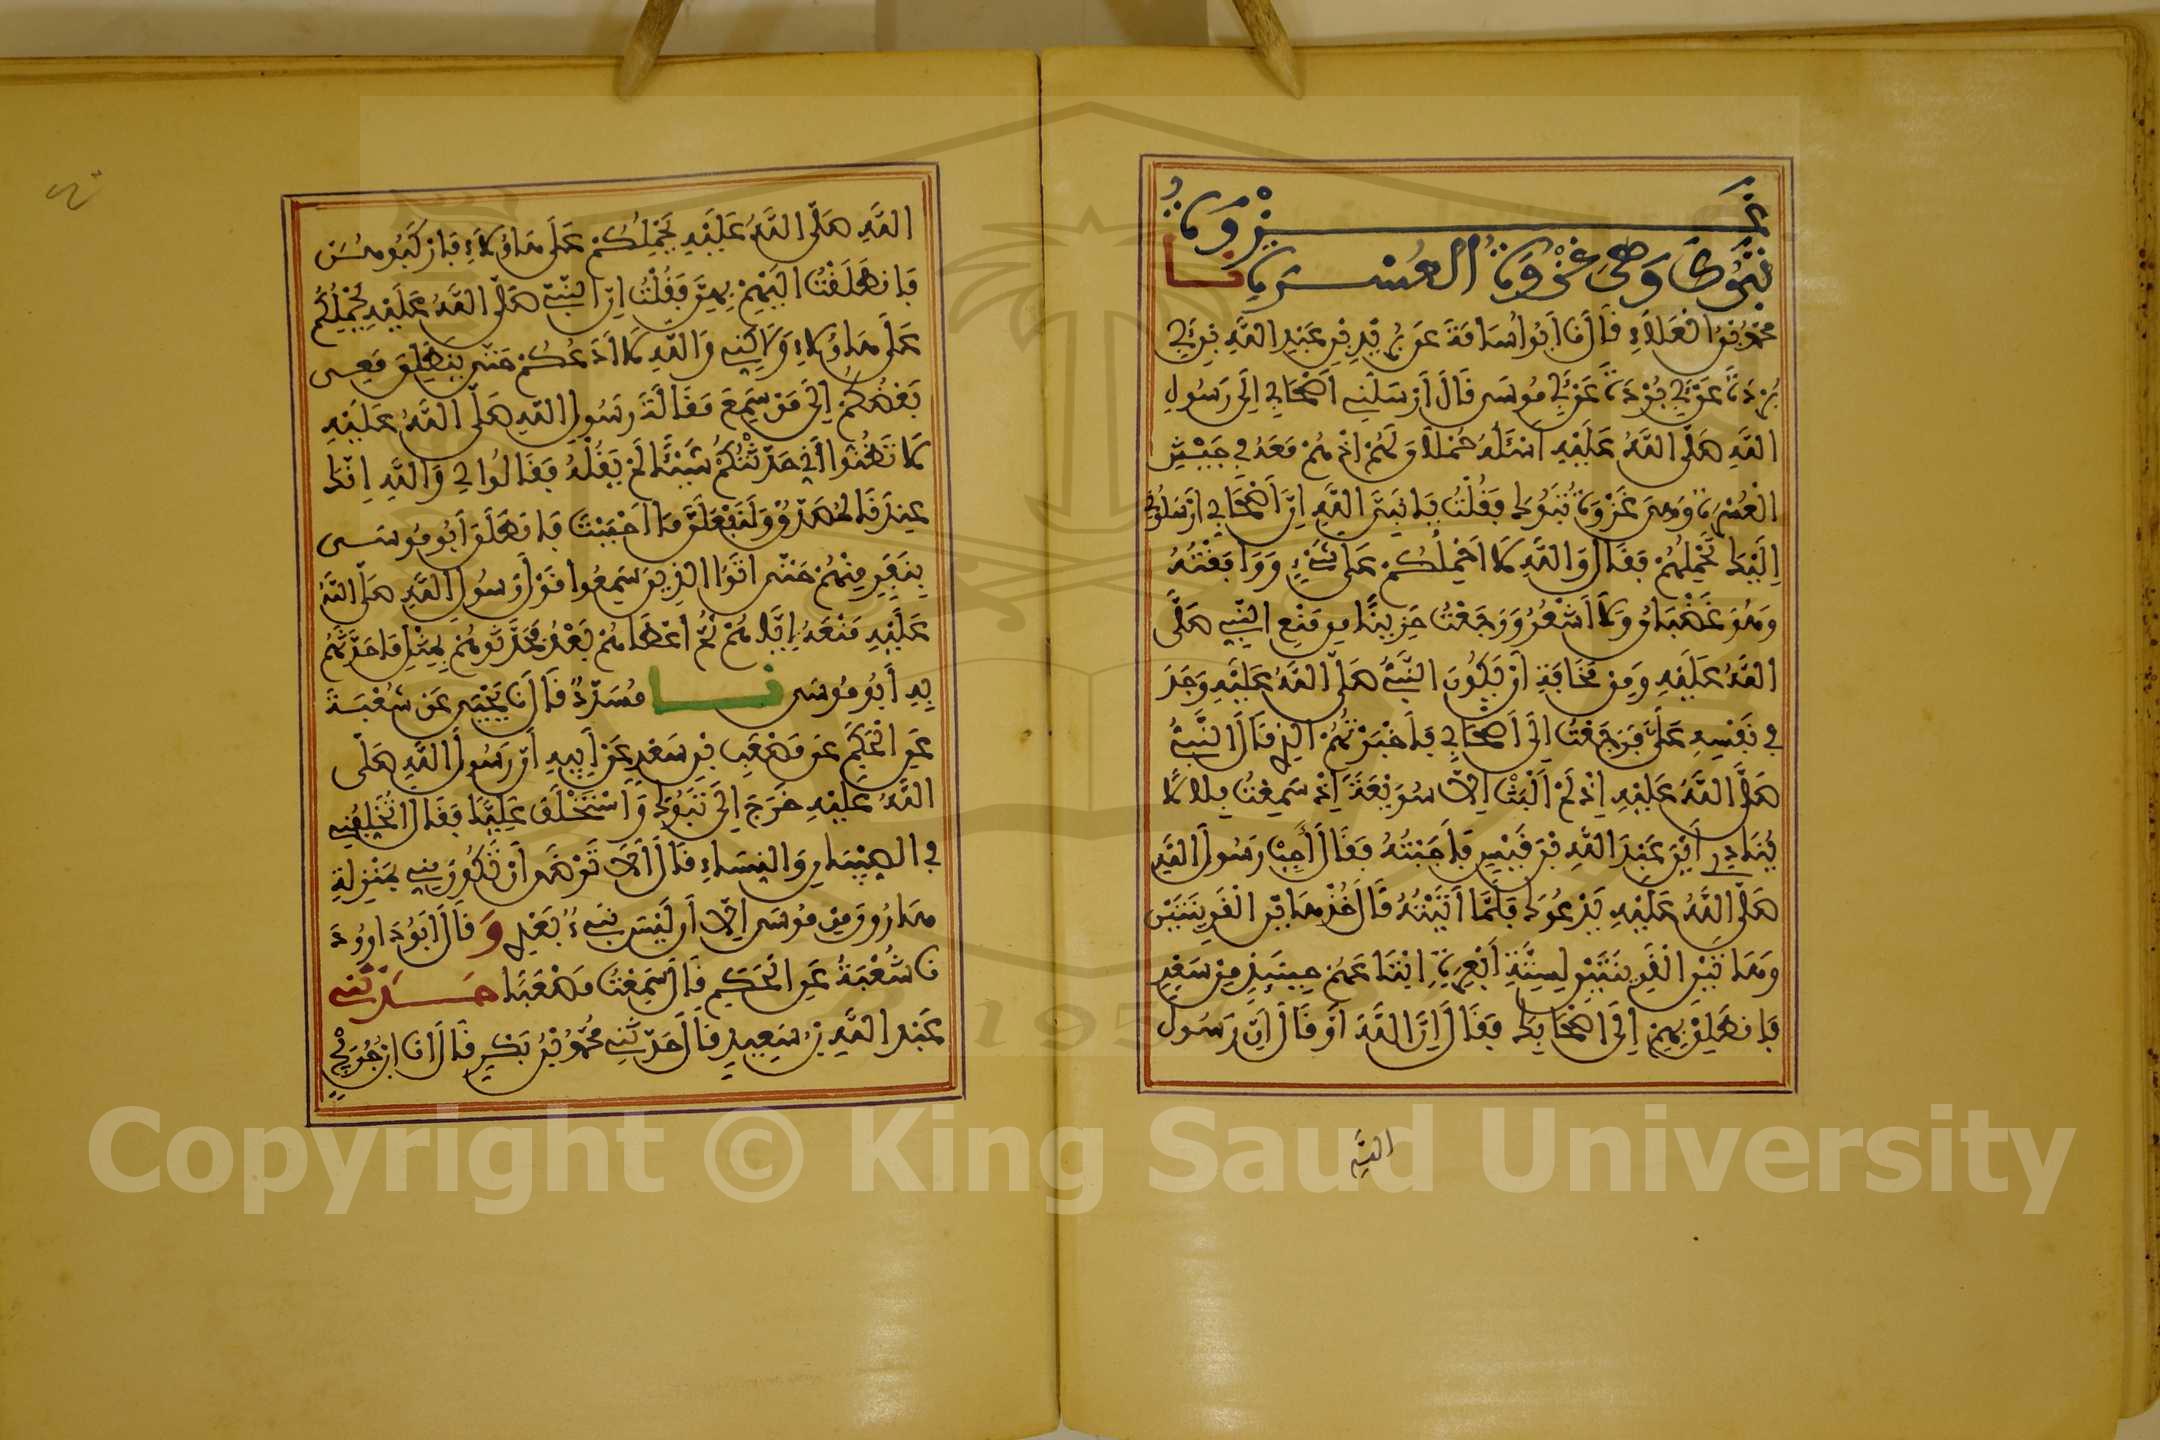 غَزْوَةُ
تَبُوكَ وَهْيَ غَزْوَةُ الْعُسْرَةِ نَا
مُحَمَّدُ بْنُ الْعَلَاءِ قَالَ نَا أَبُو أُسَامَةَ عَنْ بُرَيْدِ بْنِ عَبْدِ اللَّهِ بْنِ أَبِي
بُرْدَةَ عَنْ أَبِي بُرْدَةَ عَنْ أَبِي مُوسَى قَالَ أَرْسَلَنِي أَصْحَابِي إِلَى رَسُولِ
اللَّهِ صَلَّى اللَّهُ عَلَيْهِ أَسْئَلُهُ حُمْلَانَ لَهُمْ إِذْ هُمْ مَعَهُ فِي جَيْشِ
الْعُسْرَةِ وَهِيَ غَزْوَةُ تَبُوكَ فَقُلْتُ يَا نَبِيَّ اللَّهِ إِنَّ أَصْحَابِي أَرْسَلُونِي
إِلَيْكَ لِتَحْمِلَهُمْ فَقَالَ وَاللَّهِ لَا أَحْمِلُكُمْ عَلَى شَيْءٍ وَوَافَقْتُهُ
وَهُوَ غَضْبَانُ وَلَا أَشْعُرُ وَرَجَعْتُ حَزِينًا مِنْ مَنْعِ النَّبِيِّ صَلَّى
اللَّهُ عَلَيْهِ وَمِنْ مَخَافَةِ أَنْ يَكُونَ النَّبِيُّ صَلَّى اللَّهُ عَلَيْهِ وَجَدَ
فِي نَفْسِهِ عَلَيَّ فَرَجَعْتُ إِلَى أَصْحَابِي فَأَخْبَرْتُهُمُ الَّذِي قَالَ النَّبِيُّ
صَلَّى اللَّهُ عَلَيْهِ إِذْ لَمْ أَلْبَثْ إِلَّا سُوَيْعَةً إِذْ سَمِعْتُ بِلَالًا
يُنَادِي أَيْنَ عَبْدَ اللَّهِ بْنَ قَيْسٍ فَأَجَبْتُهُ فَقَالَ أَجِبْ رَسُولَ اللَّهِ
صَلَّى اللَّهُ عَلَيْهِ يَدْعُوكَ فَلَمَّا أَتَيْتُهُ قَالَ خُذْ هَاذَيْنِ الْقَرِينَيْنِ
وَهَاذَيْنِ الْقَرِينَيْنِ لِسِتَّةِ أَبْعِرَةٍ ابْتَاعَهُنَّ حِينَئِذٍ مِنْ سَعْدٍ
فَانْطَلِقْ بِهِنَّ إِلَى أَصْحَابِكَ فَقَالَ إِنَّ اللَّهَ أَوْ قَالَ إِنَّ رَسُولَ
اللَّهِ
اللَّهِ صَلَّى اللَّهُ عَلَيْهِ يَحْمِلُكُمْ عَلَى هَاؤُلَاءِ فَارْكَبُوهُنَّ
فَانْطَلَقْتُ إِلَيْهِمْ بِهِنَّ فَقُلْتُ إِنَّ النَّبِيَّ صَلَّى اللَّهُ عَلَيْهِ يَحْمِلُكُمْ
عَلَى هَاؤُلَاءِ وَلَاكِنِّي وَاللَّهِ لَا أَدَعُكُمْ حَتَّى يَنْطَلِقَ مَعِي
بَعْضُكُمْ إِلَى مَنْ سَمِعَ مَقَالَةَ رَسُولِ اللَّهِ صَلَّى اللَّهُ عَلَيْهِ
لَا تَظُنُّوا أَنِّي حَدَّثْتُكُمْ شَيْئًا لَمْ يَقُلْهُ فَقَالُوا لِي وَاللَّهِ إِنَّكَ
عِنْدَنَا لَمُصَدَّقٌ وَلَنَفْعَلَنَّ مَا أَحْبَبْتَ فَانْطَلَقَ أَبُو مُوسَى
بِنَفَرٍ مِنْهُمْ حَتَّى أَتَوُا الَّذِينَ سَمِعُوا قَوْلَ رَسُولِ اللَّهِ صَلَّى اللَّهُ
عَلَيْهِ مَنْعَهُ إِيَّاهُمْ ثُمَّ إِعْطَاهُمْ بَعْدُ فَحَدَّثُوهُمْ بِمِثْلِ مَا حَدَّثَهُمْ
بِهِ أَبُو مُوسَى نَا مُسَدَّدٌ قَالَ نَا يَحْيَى عَنْ شُعْبَةَ
عَنِ الْحَكَمِ عَنْ مُصْعَبِ بْنِ سَعْدٍ عَنْ أَبِيهِ أَنَّ رَسُولَ اللَّهِ صَلَّى
اللَّهُ عَلَيْهِ خَرَجَ إِلَى تَبُوكَ وَاسْتَخْلَفَ عَلِيًّا فَقَالَ أَتُخَلِّفُنِي
فِي الصِّبْيَانِ وَالنِّسَاءِ قَالَ أَلَا تَرْضَى أَنْ تَكُونَ مِنِّي بِمَنْزِلَةِ
هَارُونَ مِنْ مُوسَى إِلَّا أَنْ لَيْسَ نَبِيءٌ بَعْدِي وَقَالَ أَبُو دَاوُودَ
نَا شُعْبَةُ عَنِ الْحَكَمِ قَالَ سَمِعْتُ مُصْعَبًا حَدَّثَنِي
عَبْدُ اللَّهِ بْنُ سَعِيدٍ قَالَ حَدَّثَنِي مُحَمَّدُ بْنُ بَكْرٍ قَالَ أَنَا ابْنُ جُرَيْجٍ
Copyright © King Saud University